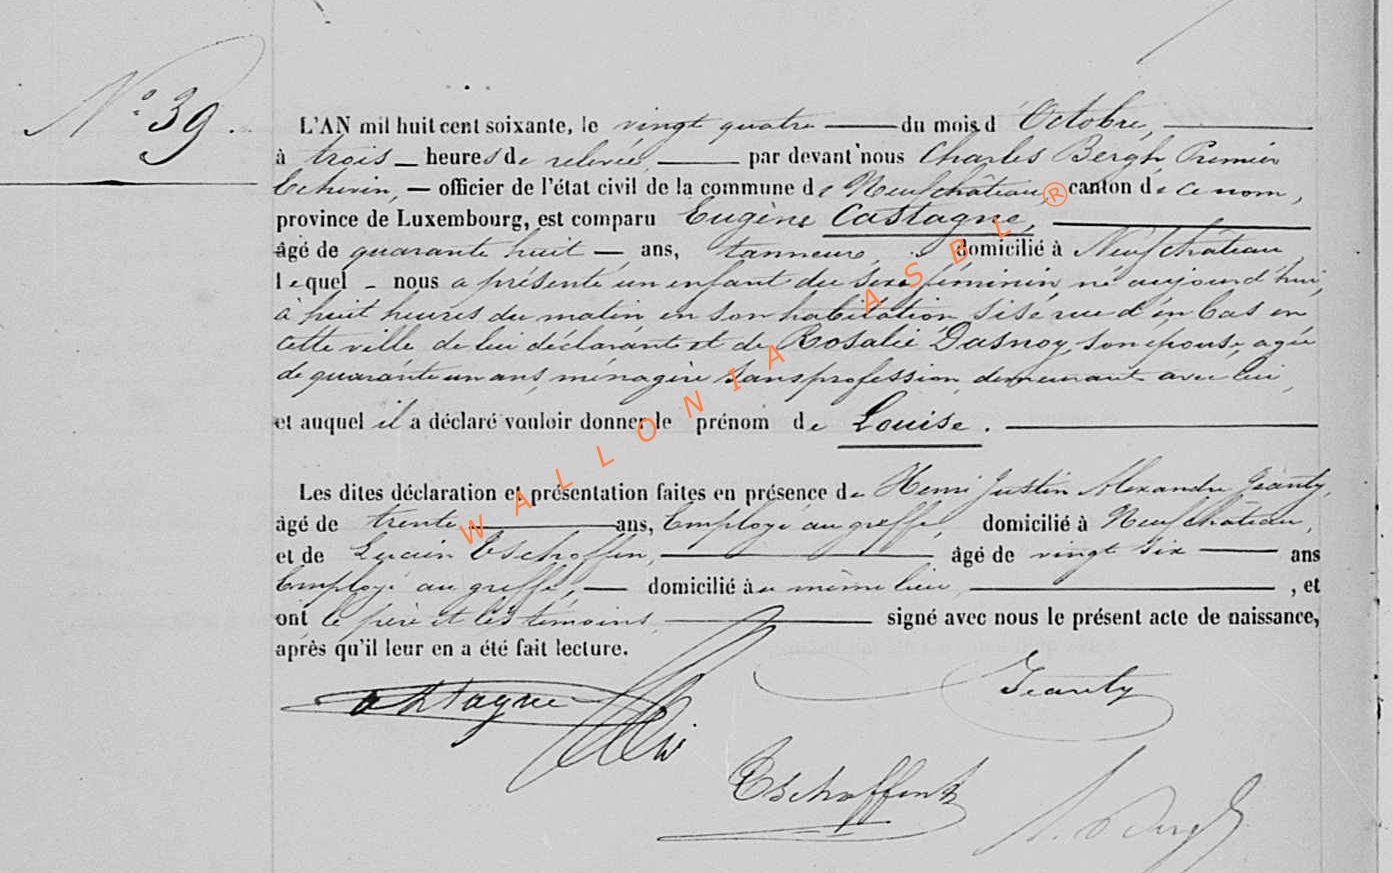 N° 39.
L'AN mil huit cent soixante, le vingt quatre du mois d' Octobre,
à trois heures de relevée, par devant nous Charles Bergh Premier
Echevin, officier de l'état civil de la commune de Neufchâteau, canton de ce nom,
province de Luxembourg, est comparu Eugène Castagne,
âgé de quarante huit ans, tanneur, domicilié à Neufchâteau,
lequel nous a présenté un enfant du sexe féminin, né aujourd'hui,
à huit heures du matin en son habitation, sise rue d'en bas en
cette ville de lui déclarant et de Rosalie Dasnoy, son épouse, agée
de quarante un ans, ménagère sans profession, demeurant avec lui,
et auquel il a déclaré vouloir donner le prénom de Louise.
Les dites déclaration et présentation faites en présence de Henri Justin Alexandre Jeanty,
âgé de trente ans, Employé au greffe, domicilié à Neufchâteau,
et de Lucien Tschoffen, âgé de vingt six ans
Employé au greffe, domicilié au même lieu, , et
ont le père et les témoins signé avec nous le présent acte de naissance,
après qu'il leur en a été fait lecture.
Castagne
Jeanty
Tschoffen
WALLONIA ASBL ®